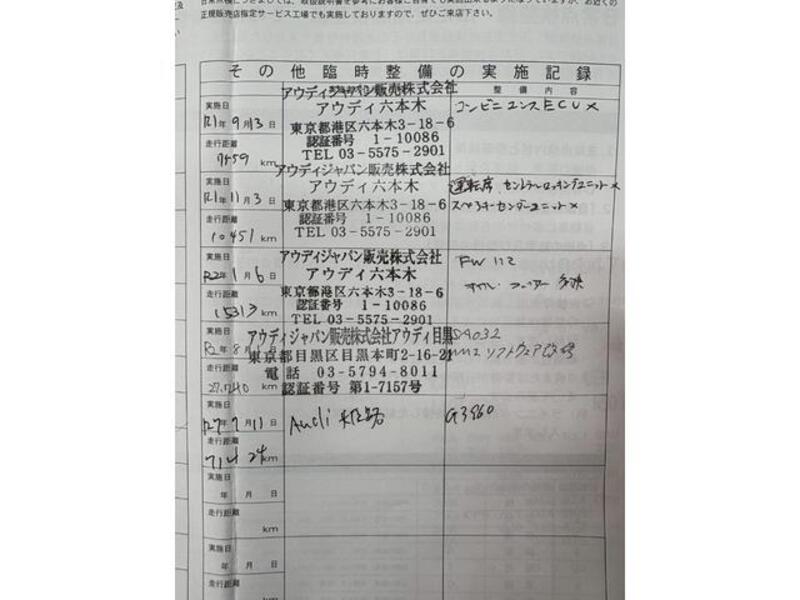 正規販売店指定サービス工場でも実施しておりますので、ぜひご来店下さい。
その他臨時整備の実施記録
整備内容
実施日
R1年9月13日
走行距離
7459 km
アウディジャパン販売株式会社
アウディ六本木
東京都港区六本木3-18-6
認証番号 1-10086
TEL 03-5575-2901
コンビニエンスECU×
実施日
R1年11月3日
走行距離
10451 km
アウディジャパン販売株式会社
アウディ六本木
東京都港区六本木3-18-6
認証番号 1-10086
TEL 03-5575-2901
運転席、セントラルロッキングユニット×
実施日
R2年1月6日
走行距離
15313 km
アウディジャパン販売株式会社
アウディ六本木
東京都港区六本木3-18-6
認証番号 1-10086
TEL 03-5575-2901
実施日
R2年8月
走行距離
27,240 km
アウディジャパン販売株式会社アウディ目黒
東京都目黒区目黒本町2-16-21
電話 03-5794-8011
認証番号 第1-7157号
SA032
ソフトウェア
実施日
R7年7月11日
走行距離
71424km
Audi 姫路
G3960
実施日
年 月 日
走行距離
km
実施日
年 月 日
走行距離
km